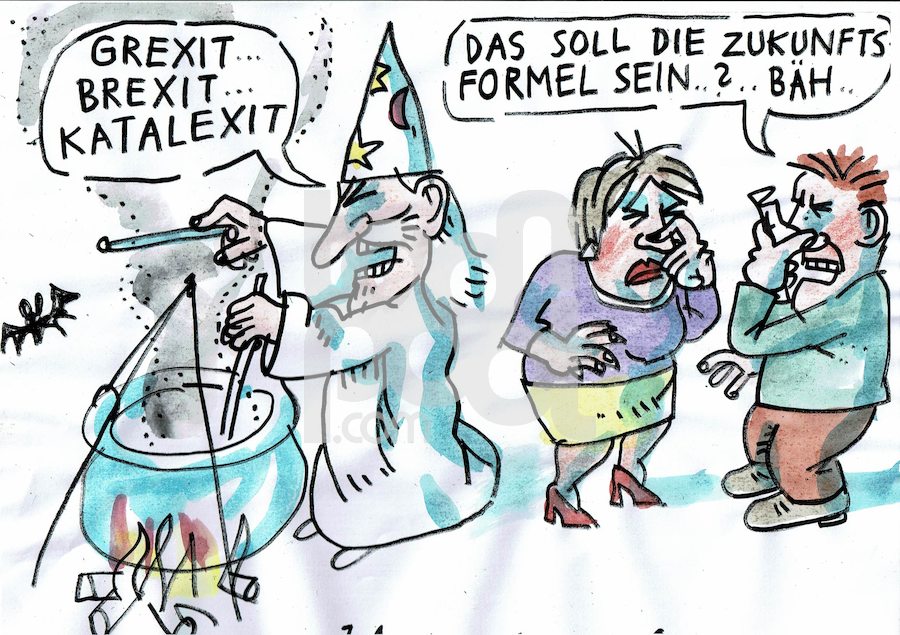 GREXIT...
BREXIT...
KATALEXIT
DAS SOLL DIE ZUKUNFTS
FORMEL SEIN..?.. BÄH..